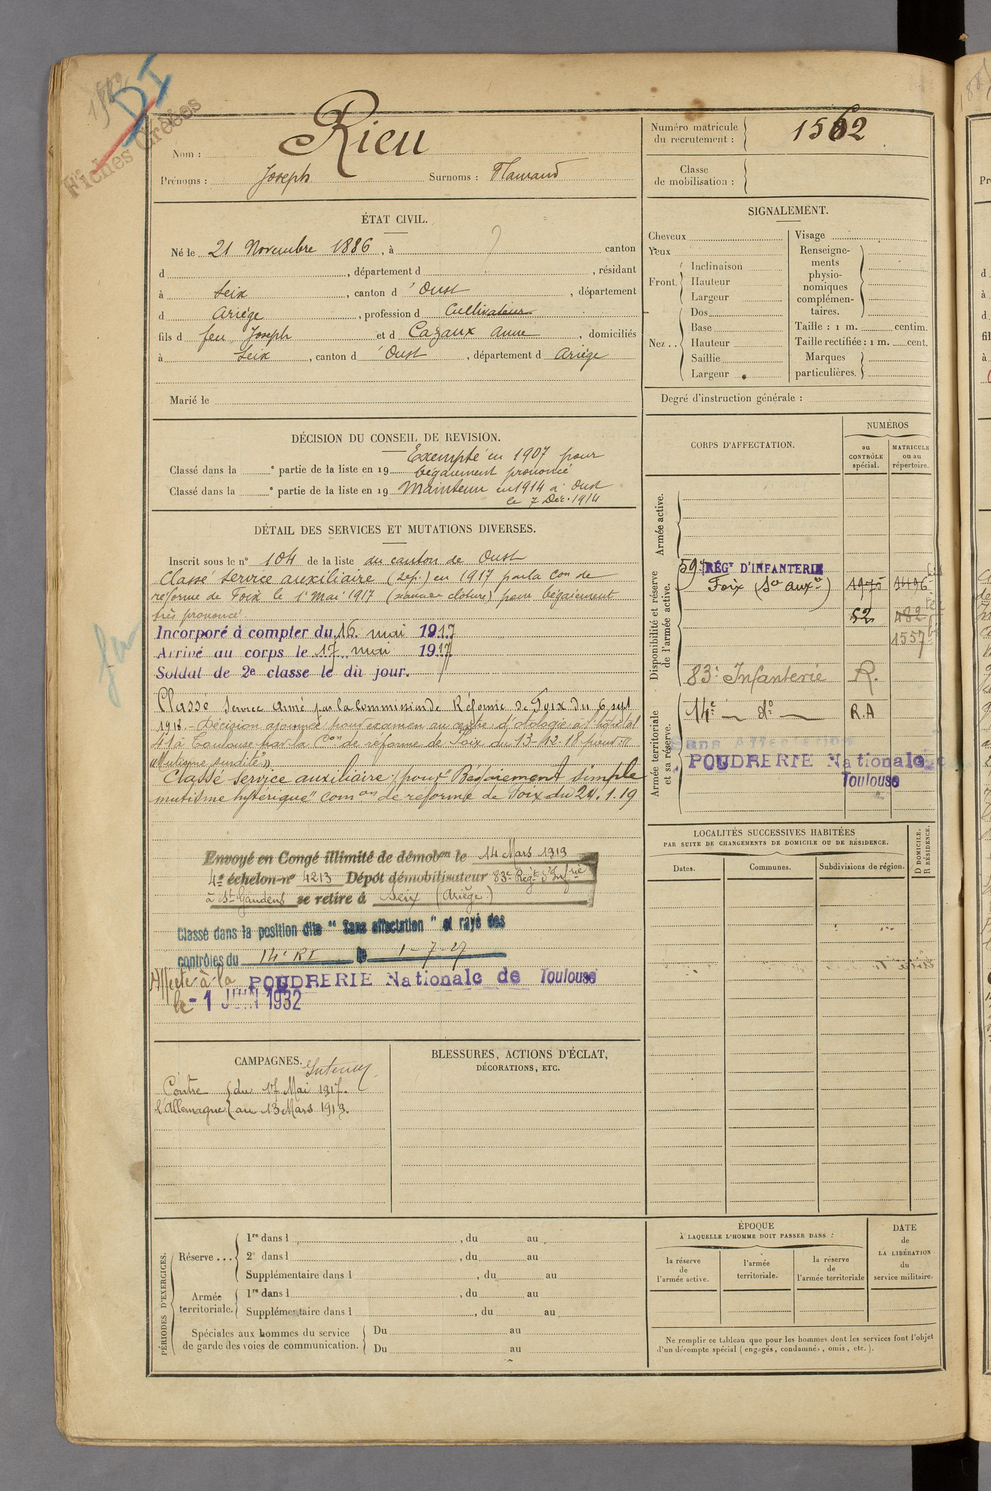 DI
Fiches Créées
Nom : Rieu
Prénoms : Joseph Surnoms : Flamand
Numéro matricule du recrutement : 1562
Classe de mobilisation :
ÉTAT CIVIL.
Né le 21 Novembre 1886, à ? canton
d , département d , résidant
à Seix, canton d'Oust, département
d Ariège, profession d Cultivateur
fils d feu Joseph et d Cazaux Anne, domiciliés
à Seix, canton d'Oust, département d Ariège
Marié le
SIGNALEMENT.
Cheveux
Yeux
Front. Inclinaison
Hauteur
Largeur
Nez .. Dos
Base
Hauteur
Saillie
Largeur
Visage
Renseignements physionomiques complémentaires.
Taille : 1 m. centim.
Taille rectifiée : 1 m. cent.
Marques particulières.
Degré d'instruction générale :
DÉCISION DU CONSEIL DE REVISION.
Exempté en 1907 pour
Classé dans la e partie de la liste en 19 bégaiement prononcé
Classé dans la e partie de la liste en 19 Maintenu en 1914 à Oust
le 7 Déc. 1914
DÉTAIL DES SERVICES ET MUTATIONS DIVERSES.
Inscrit sous le n° 104 de la liste du canton de Oust
Classé service auxiliaire en 1917 par la Con de
réforme de Foix le 1er Mai 1917 pour bégaiement
très prononcé
Incorporé à compter du 16 mai 1917
Arrivé au corps le 17 mai 1917
Soldat de 2e classe le dit jour.
Classé Service Armé par la Commission de Réforme de Foix du 6 sept
1918. Décision ajournée pour examen au centre d'otologie à l'hôpital
41 à Toulouse par la Con de réforme de Foix du 13-12-18 pour
surdité"
Classé service auxiliaire pour "Bégaiement simple
mutisme hystérique" Comon de réforme de Foix du 24.1.19
Envoyé en Congé illimité de démobon le 14 Mars 1919
4e échelon n° 4213 Dépôt démobilisateur 83e Régt d'Infrie
à St Gaudens se retire à Seix (Ariège)
Classé dans la position dite "Sans affectation" et rayé des
contrôles du 14e RI le 1-7-27
Affecté à la POUDRERIE Nationale de Toulouse
le -1 JUIN 1932
CORPS D'AFFECTATION.
NUMÉROS
au CONTRÔLE spécial.
MATRICULE ou au répertoire.
Armée active.
Disponibilité et réserve de l'armée active.
59e RÉGT D'INFANTERIE
Foix (Son auxre)
52 482
1557
83e Infanterie R.
Armée territoriale et sa réserve.
14e — do — R.A
Sans Affectation
POUDRERIE Nationale
Toulouse
LOCALITÉS SUCCESSIVES HABITÉES
PAR SUITE DE CHANGEMENTS DE DOMICILE OU DE RÉSIDENCE.
Dates.
Communes.
Subdivisions de région.
D DOMICILE.
R RÉSIDENCE.
CAMPAGNES.
Intérieur
Contre l'Allemagne du 17 Mai 1917.
au 13 Mars 1919.
BLESSURES, ACTIONS D'ÉCLAT,
DÉCORATIONS, ETC.
PÉRIODES D'EXERCICES.
Réserve ... 1re dans l , du au
2e dans l , du au
Supplémentaire dans l , du au
Armée territoriale. 1re dans l , du au
Supplémentaire dans l , du au
Spéciales aux hommes du service de garde des voies de communication. Du au
Du au
ÉPOQUE
À LAQUELLE L'HOMME DOIT PASSER DANS :
la réserve de l'armée active.
l'armée territoriale.
la réserve de l'armée territoriale
DATE
de
LA LIBÉRATION
du
service militaire.
Ne remplir ce tableau que pour les hommes dont les services font l'objet
d'un décompte spécial (engagés, condamnés, omis, etc.).